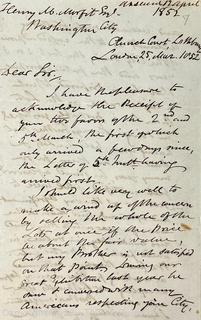 answered 13 April
Henry M. Morfit Esq. 1852
Washington City
Church Court
London, 25, Mar. 1852
Dear Sir,
I have the pleasure to
acknowledge the Receipt of
your two favors of the 2nd and
5th March, the first of which
only arrived a few days since,
the Letter of 5th Inst. having
arrived first.
I should like very well to
make a wind up of the concern
by selling the whole of the
Lots at once if the Price
be about the fair value,
but my Brother is not satisfied
on that Point,
Great Exhibition last year he
conversed with many
Americans respecting your City,